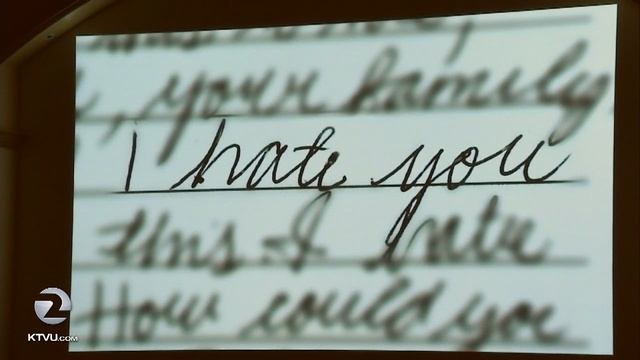 , your family
I hate you
this I hate
How could you
2
KTVU.COM